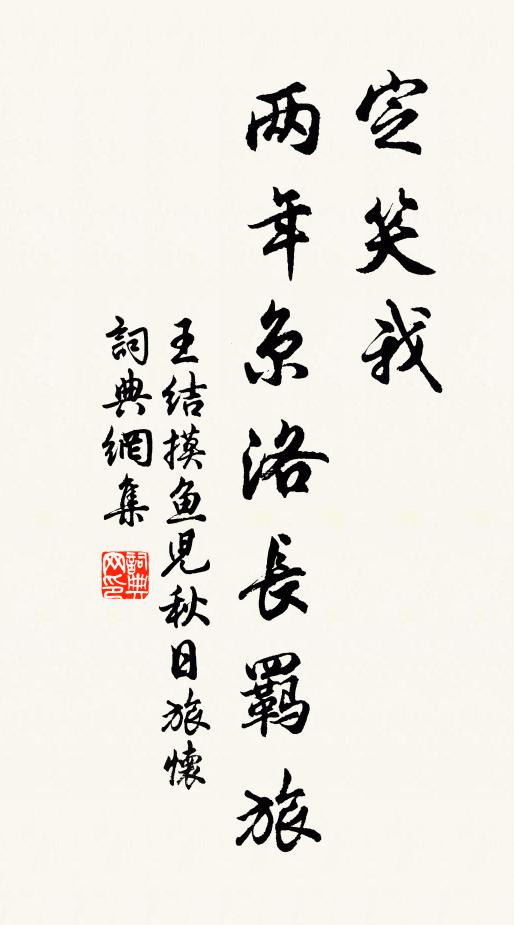 定笑我
两年京洛長羁旅
王结摸鱼児秋日旅懷
詞典網集
詞典网印